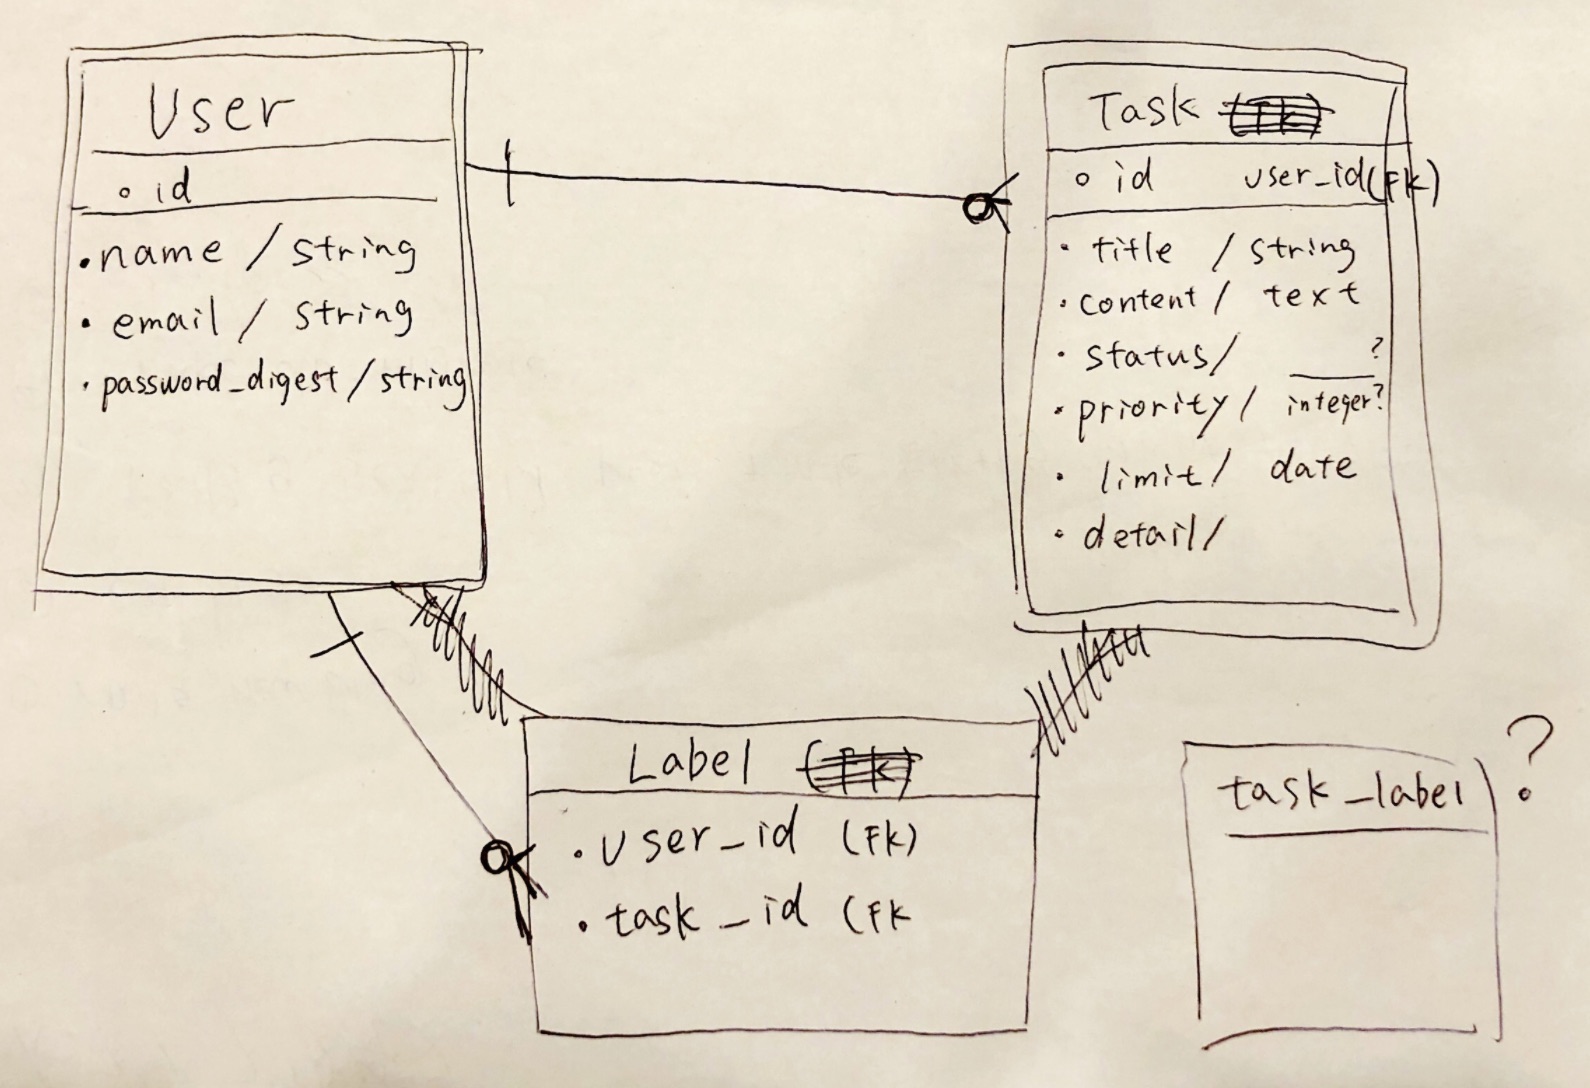 User
id
name / string
email / string
password_digest / string
Task
id user_id(FK)
title / string
content / text
status / ?
priority / integer?
limit / date
detail /
Label
user_id (FK)
task_id (FK
task_label ?